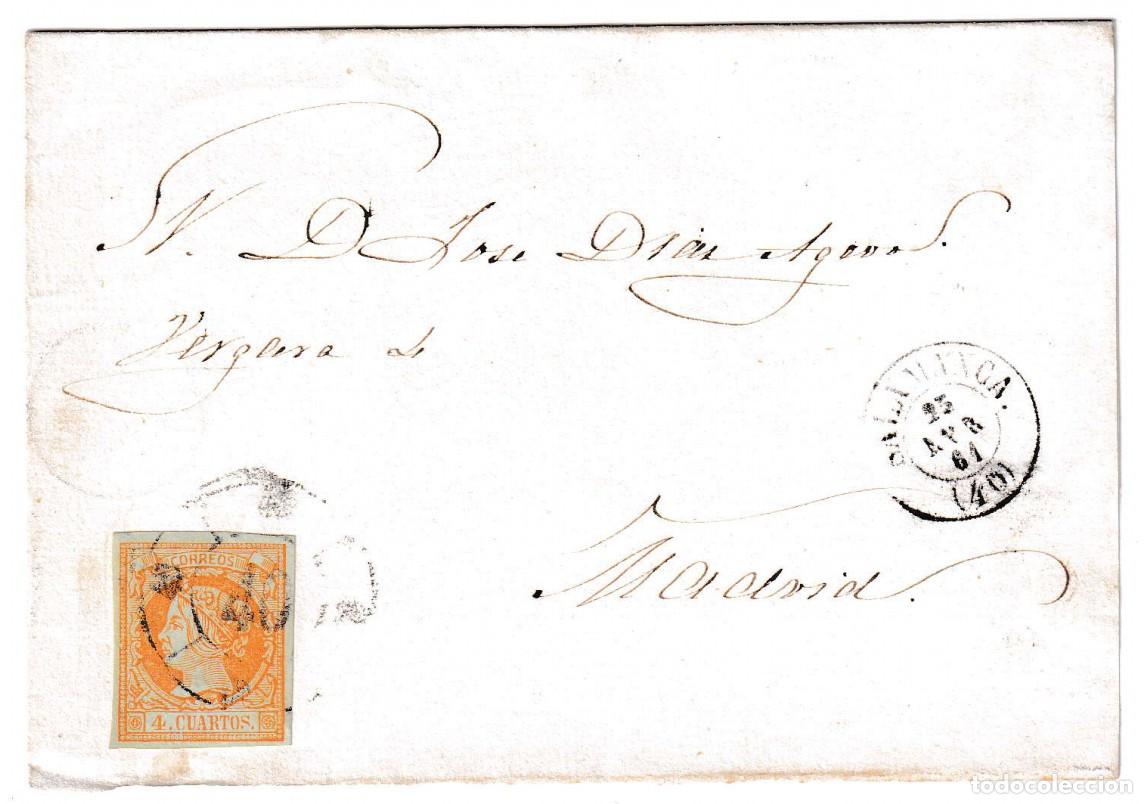 D Jose Dias Agero S.
Vergara 4
SALAMANCA.
25
ABR
61
(40)
Madrid.
CORREOS
4. CUARTOS.
todocoleccion